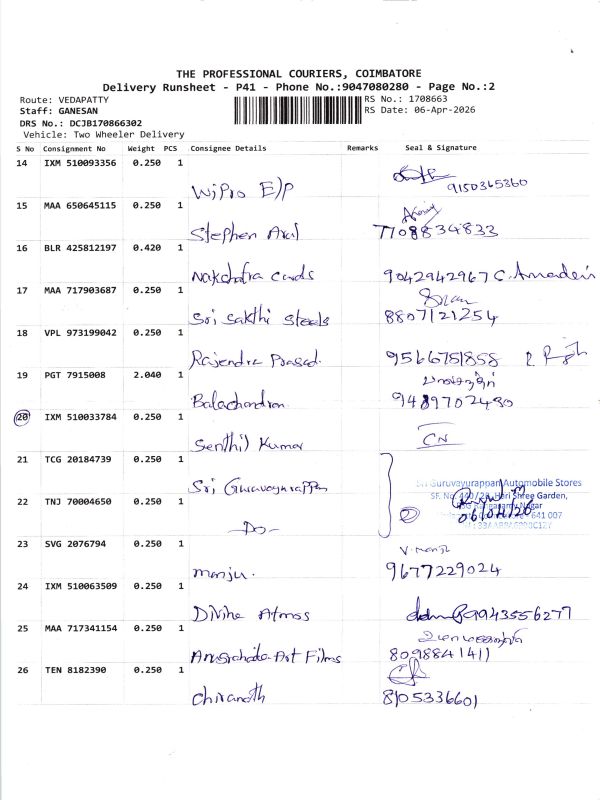 THE PROFESSIONAL COURIERS, COIMBATORE
Delivery Runsheet - P41 - Phone No.:9047080280 - Page No.:2
Route: VEDAPATTY RS No.: 1708663
Staff: GANESAN RS Date: 06-Apr-2026
DRS No.: DCJB170866302
Vehicle: Two Wheeler Delivery
S No Consignment No Weight PCS Consignee Details Remarks Seal & Signature
14 IXM 510093356 0.250 1
Wipro E/P 9150365360
15 MAA 650645115 0.250 1
Stephen Arul 7708834833
16 BLR 425812197 0.420 1
Nakshatra Cards 9042942967
17 MAA 717903687 0.250 1
Sri Sakthi Steels 8807121254
18 VPL 973199042 0.250 1
Rajendra Prasad. 9566751858
19 PGT 7915008 2.040 1
Balachandran 9489702430
20 IXM 510033784 0.250 1
Senthil Kumar CN
21 TCG 20184739 0.250 1
Sri Guruvayurappan
Sri Guruvayurappan Automobile Stores
Hari Shree Garden,
22 TNJ 70004650 0.250 1
-Do- 2 06/04/26
641 007
23 SVG 2076794 0.250 1
V. Manju
manju. 9677229024
24 IXM 510063509 0.250 1
Divine Atmos 9943556277
25 MAA 717341154 0.250 1
Anugraha Art Films 8098841411
26 TEN 8182390 0.250 1
8105336601